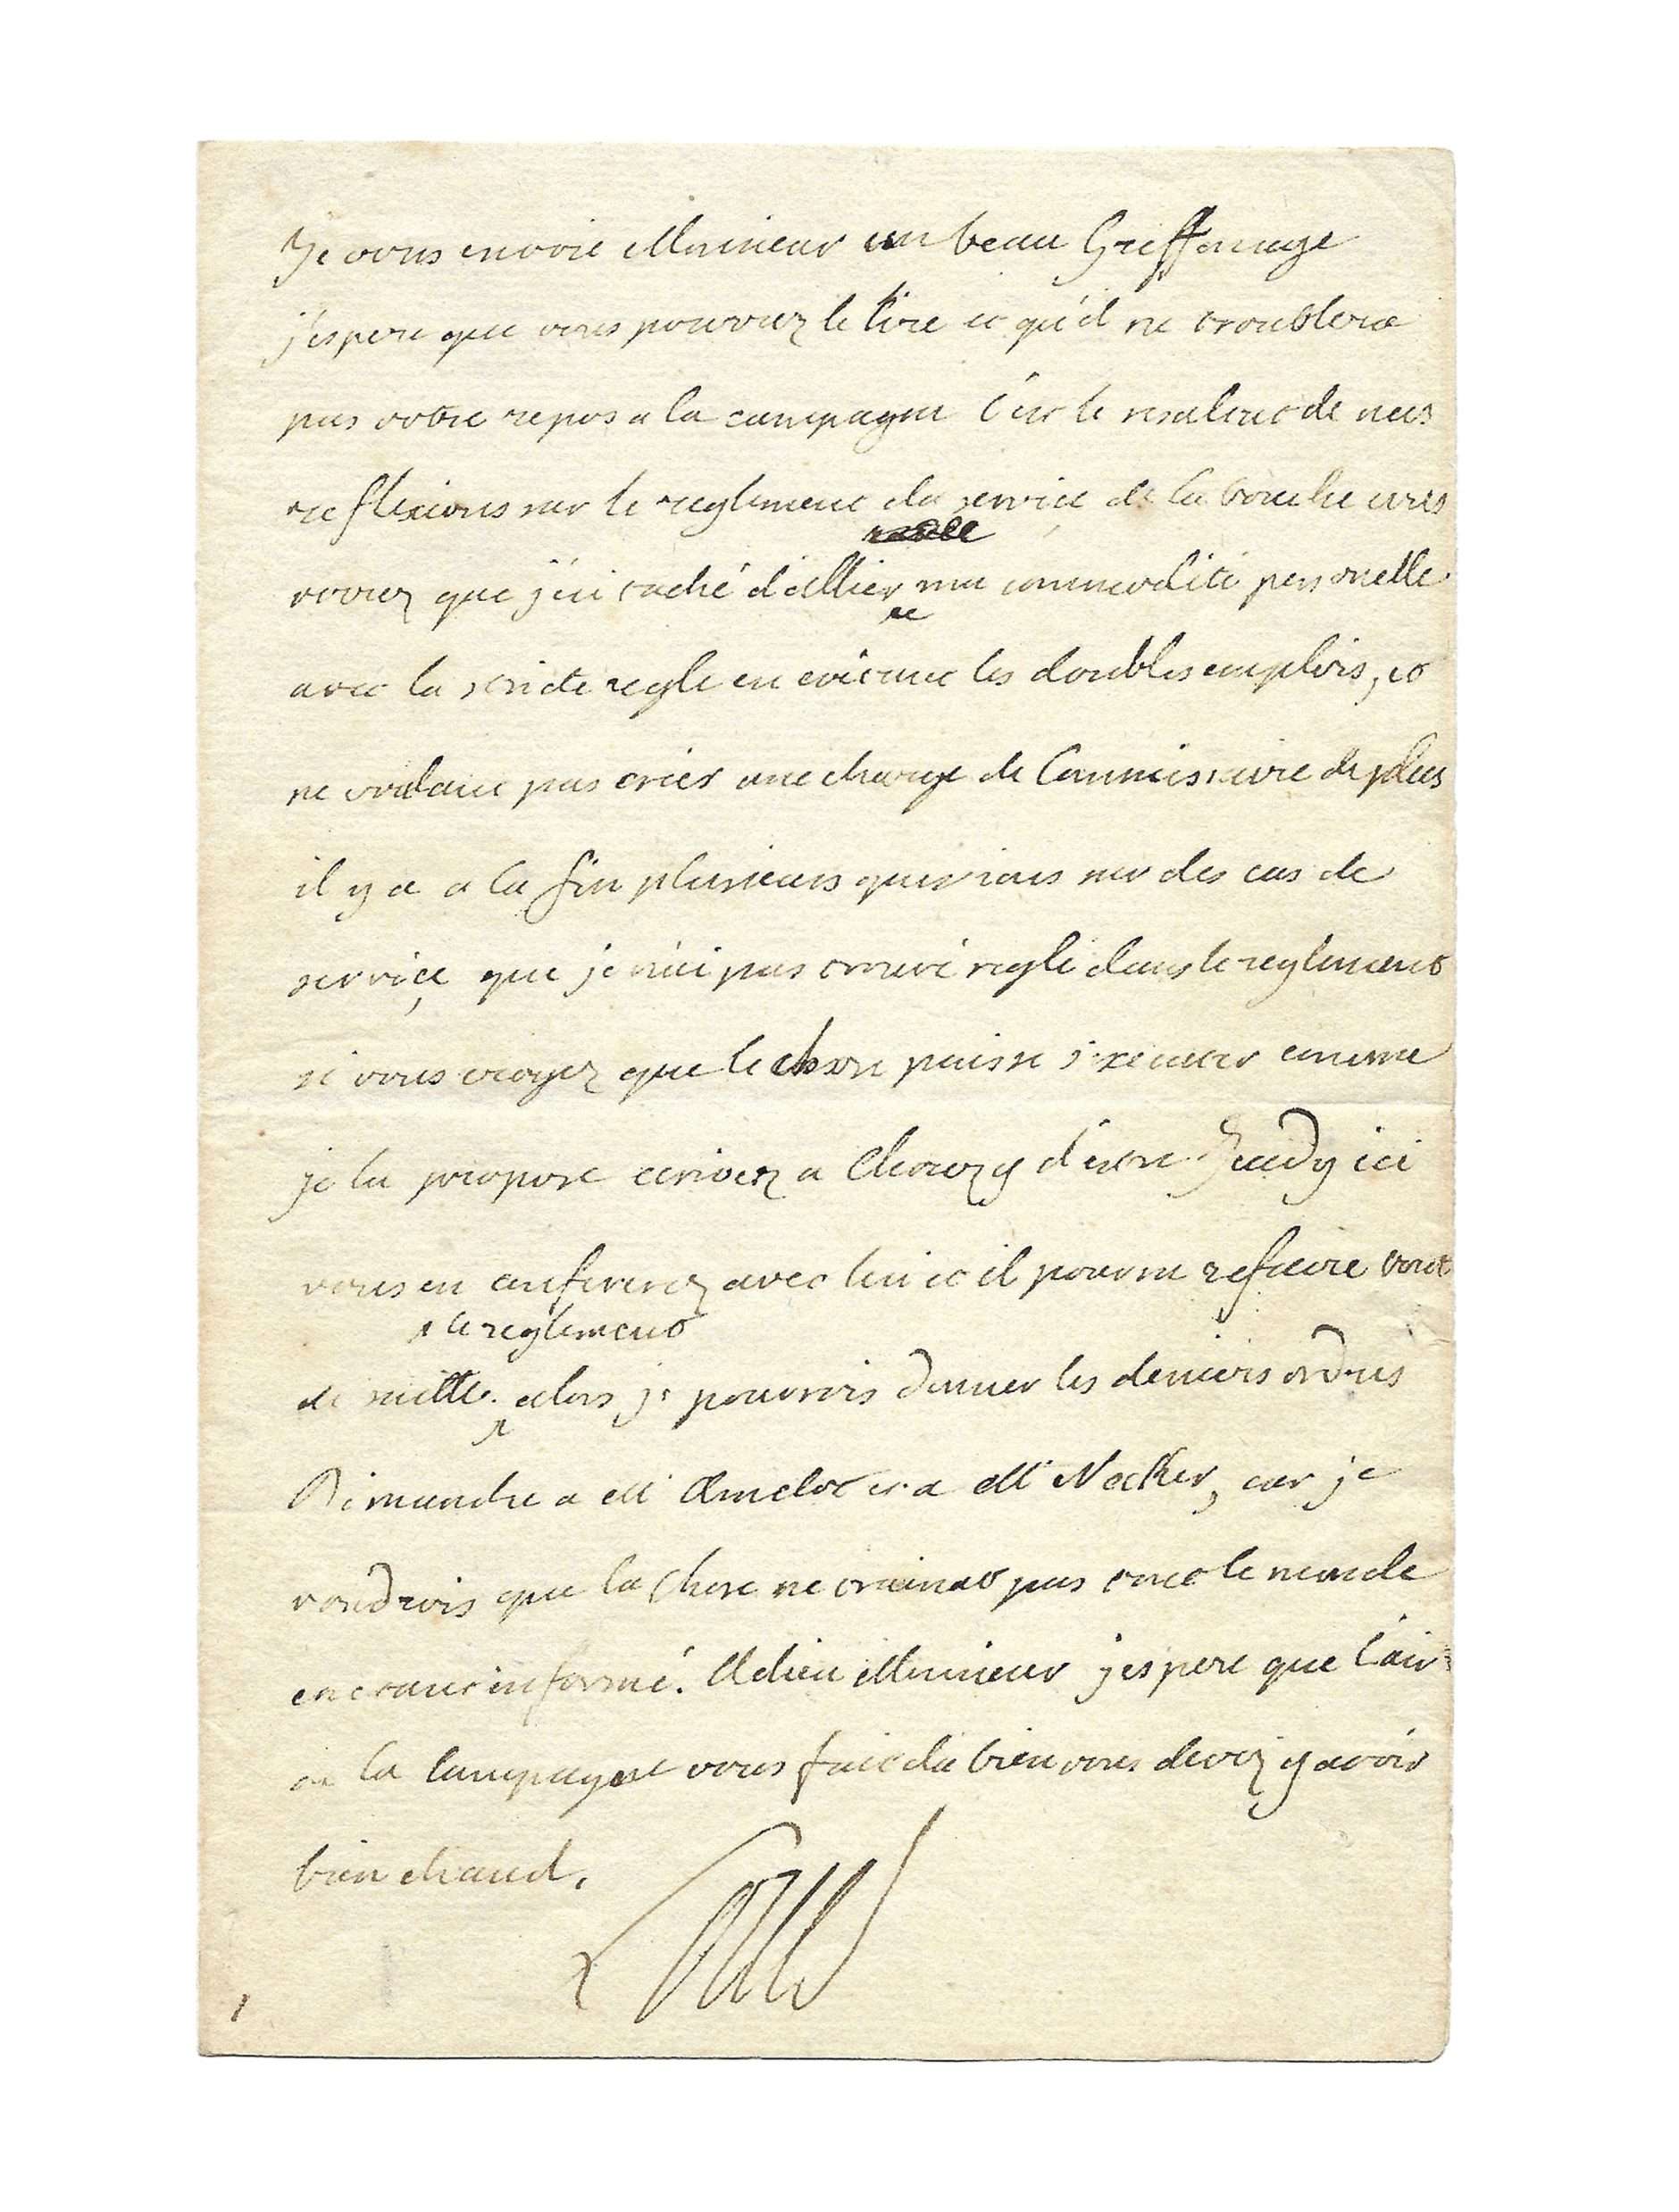 Je vous envoie Monsieur un beau Griffonage
j'espere que vous pourrez le lire et qu'il ne troublera
pas votre repos a la campagne c'est le resultat de mes
reflexions sur le reglement du service de la bouche vous
verrez que j'ai taché d'allier ma commodité personelle
avec la stricte regle en evitant les doubles emplois, et
ne voulant pas créer une charge de Commissaire de plus
il y a a la fin plusieurs questions sur des cas de
service que je n'ai pas trouvé reglé dans le reglement
si vous croyez que la chose puisse s'executer comme
je la propose ecrivez a Chouzy d'estre Jeudy ici
vous en confererez avec lui et il pourra refaire tout
le reglement
de suitte. alors je pourrois donner les deniers ordres
Dimanche a Mr Amelot et a Mr Necker, car je
voudrois que la chose ne trainat pas tout le monde
en etant informé. Adieu Monsieur j'espere que l'air
de la Campagne vous fait du bien vous devez y avoir
bien chaud.
Louis
1